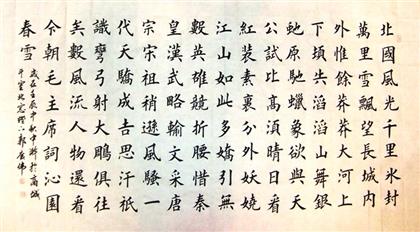 北國風光千里氷封
萬里雪飄望長城内
外惟餘莽莽大河上
下頃失滔滔山舞銀
虵原馳蠟象欲與天
公試比高須晴日看
紅裝素裹分外妖嬈
江山如此多嬌引無
數英雄競折腰惜秦
皇漢武略輸文采唐
宗宋祖稍遜風騷一
代天驕成吉思汗祇
識彎弓射大鵰俱往
矣數風流人物還看
今朝毛主席詞沁園
春雪
歲在壬辰中秋中澣於高城